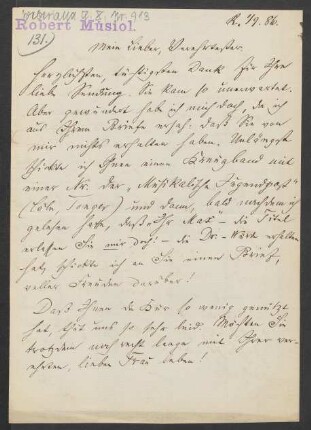 Robert Musiol.
131.)
R. 7/9. 86.
Mein lieber, Verehrtester.
Herzlichsten, tüchtigsten Dank für Ihre
liebe Sendung. Sie kam so unerwartet.
Aber gewundert hab ich mich doch, da ich
aus Ihrem Briefe ersah, daß Sie von
mir nichts erhalten haben. Unlängst
schickte ich Ihnen einen Kreuzband mit
einer Nr. der „Musikalische Jugendpost“
(Cöln, Tonger) und dann, bald nachdem ich
gelesen hatte, daß
erlesen Sie mir doch! - die Dr.-Würde erhalten
hat, schickte ich an Sie einen Brief,
voller Freuden darüber!
Daß Ihnen die Kur so wenig genützt
hat, thut uns so sehr leid. Möchten Sie
trotzdem noch recht lange mit Ihrer ver-
ehrten, lieben Frau leben!